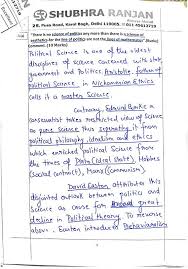 SHUBHRA RANJAN
"There is no science of politics any more than there is a science of
aesthetics for the line of politics are not the lines of mathematics" (Burke)
Comment. (10 Marks)
Political Science is one of the oldest
disciplines of science concerned with state,
government and Politics. Aristotle, father of
political Science in Nichomachean Ethics
calls it a master Science.
Contrary, Edmund Burke's
conservatism restricted view of Science
as pure science thus separating it from
political philosophy, idealism and ethics
which enriched political Science from
the times of Plato (ideal state), Hobbes
(Social contract), Marx (Communism).
David Easton attributes this
disjointed outlook between politics and
Science as cause for great
decline in Political theory. To reverse
above, Easton introduced Behaviouralism